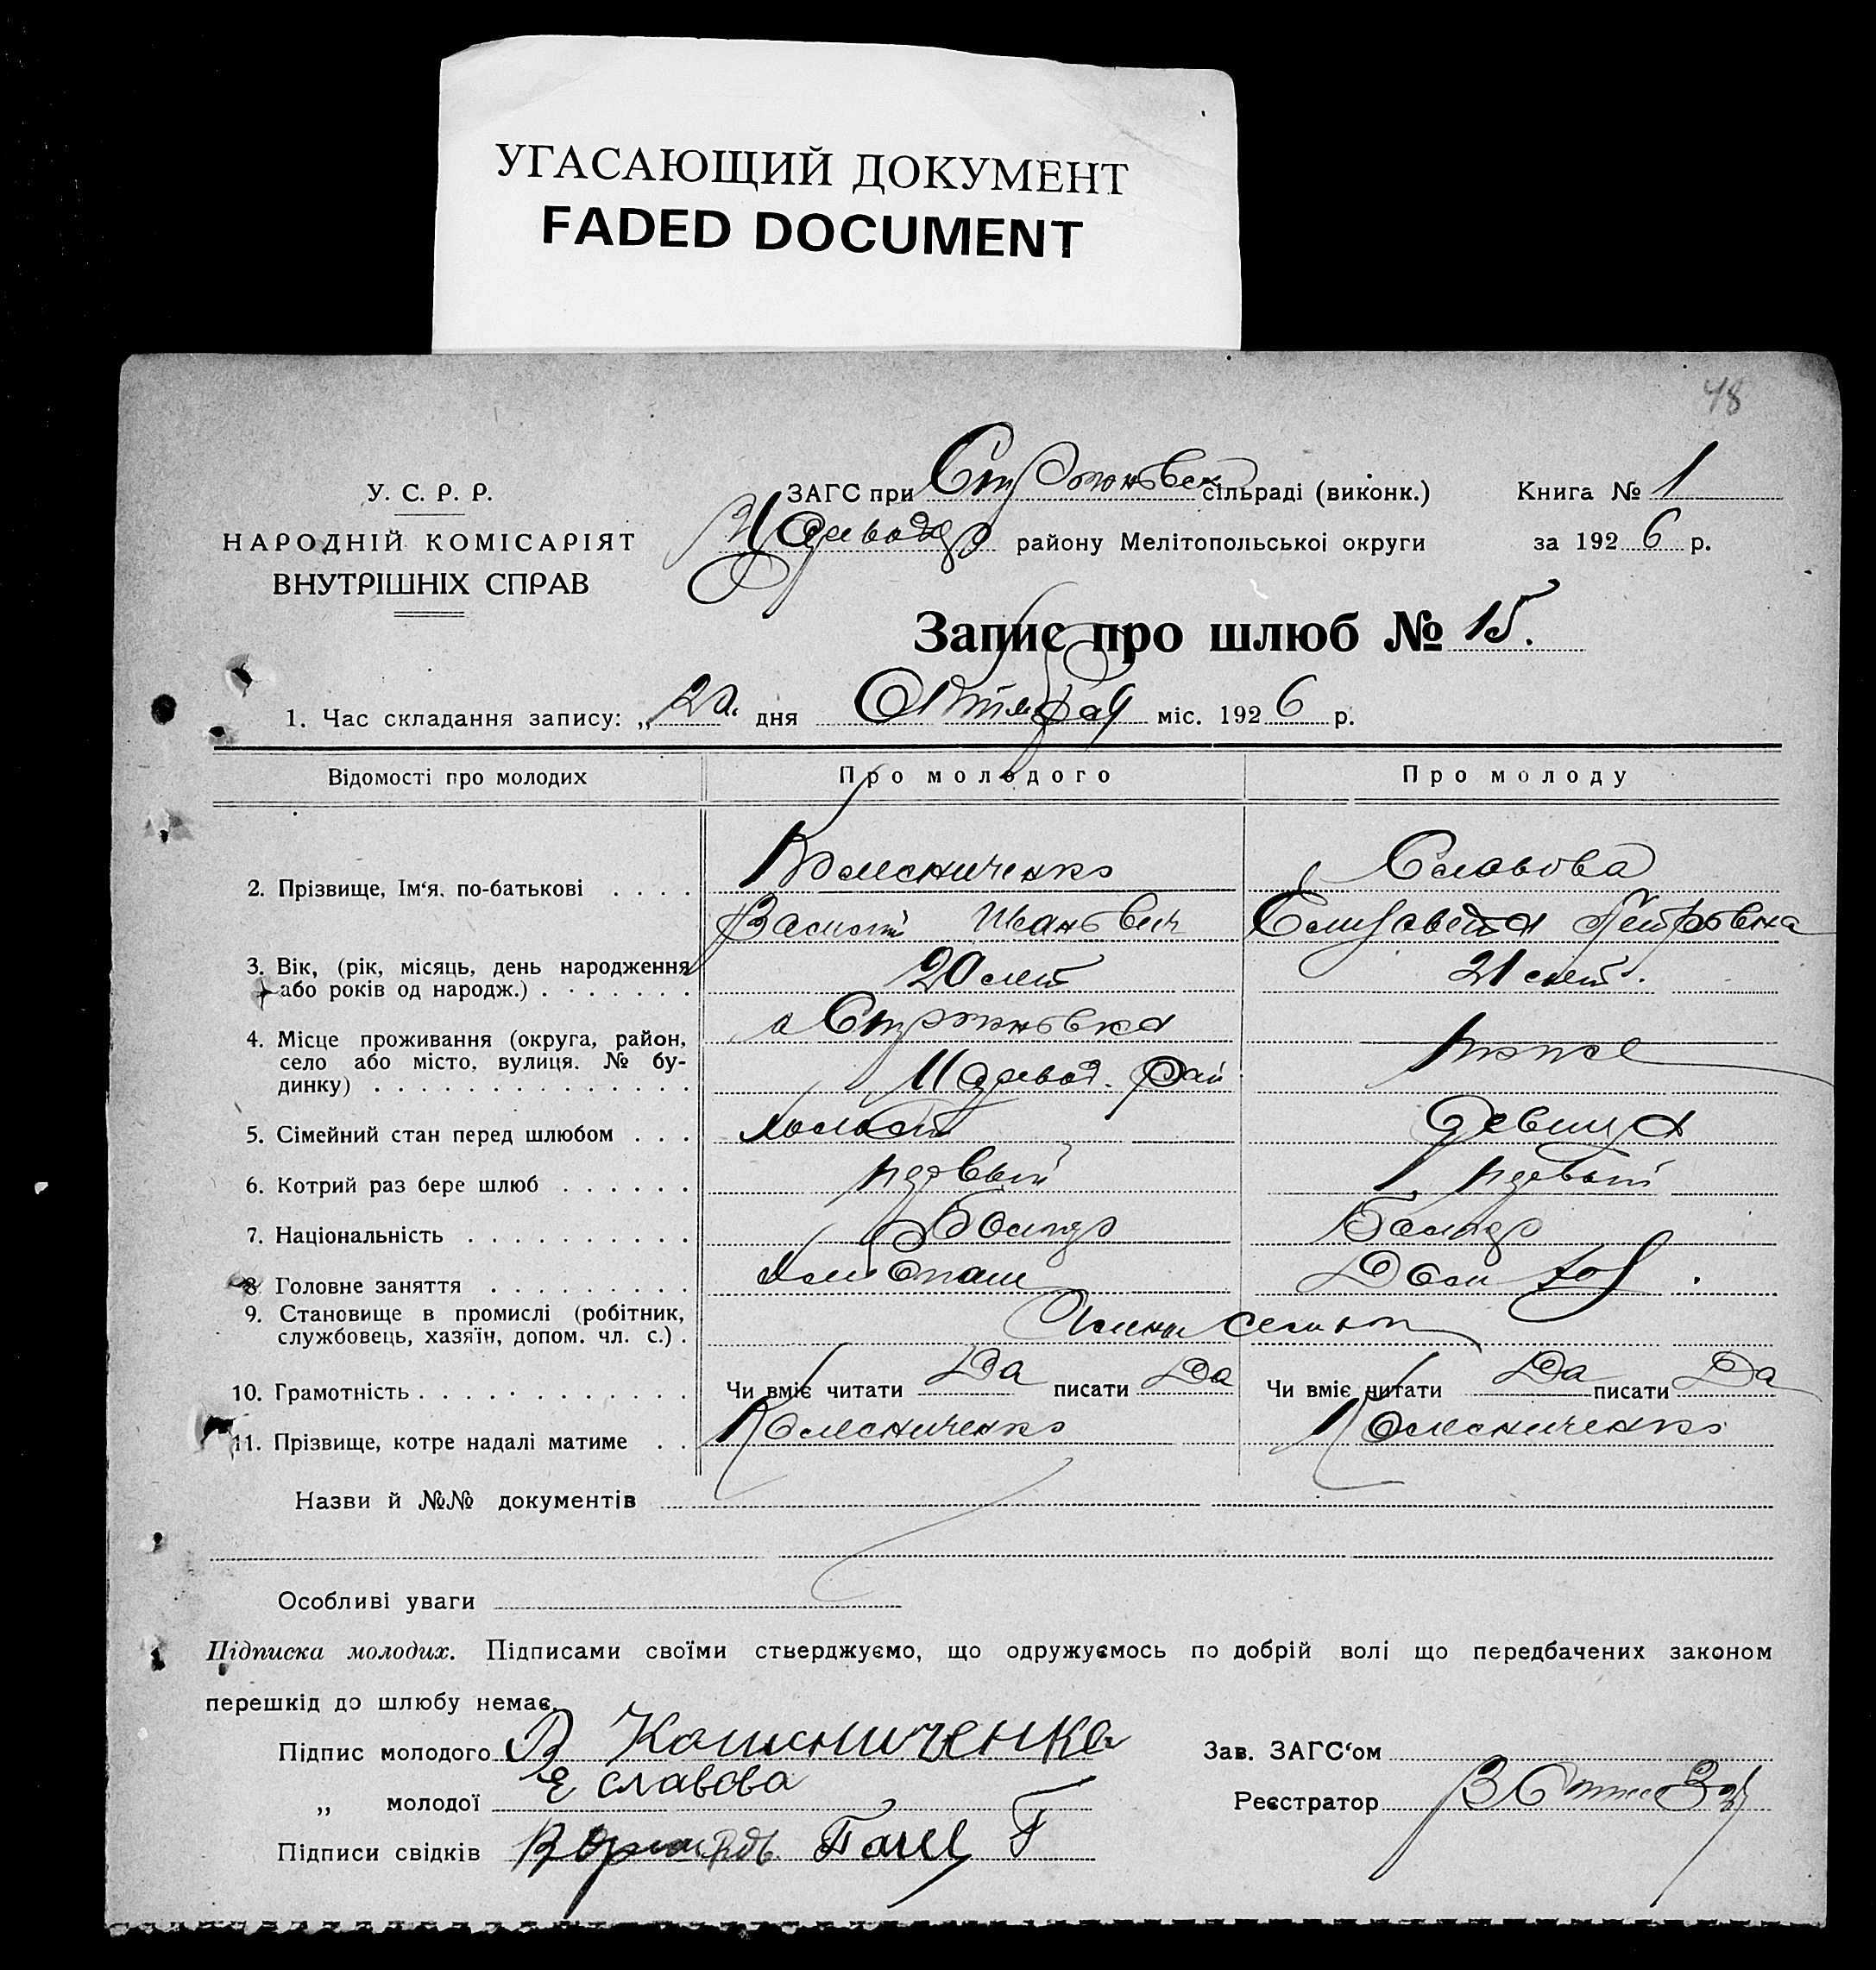 УГАСАЮЩИЙ ДОКУМЕНТ
FADED DOCUMENT
48
У. С. Р. Р.
НАРОДНІЙ КОМІСАРІЯТ
ВНУТРІШНІХ СПРАВ
ЗАГС при сільраді (виконк.)
району Мелітопольської округи
Книга № 1
за 1926 р.
Запис про шлюб № 15.
1. Час складання запису: „ дня Октября міс. 1926 р.
Відомості про молодих Про молодого Про молоду
2. Прізвище, Ім'я, по-батькові . . . . Колесниченко Славова
Василий Иванович Елизавета Петровна
3. Вік, (рік, місяць, день народження або років од народж.) . . . . . . . 20 лет 21 лет.
4. Місце проживання (округа, район, село або місто, вулиця. № будинку) . . . . . . . . . . . . . .
рай. тоже
5. Сімейний стан перед шлюбом . . . холост девица
6. Котрий раз бере шлюб . . . . . . первый первый
7. Національність . . . . . . . . . . Болгар Болгар
8 Головне заняття . . . . . . . . . Хлебопаш Дом хоз.
9. Становище в промислі (робітник, службовець, хазяїн, допом. чл. с.) . Члены
10. Грамотність . . . . . . . . . . . . Чи вміє читати Да писати Да Чи вміє читати Да писати Да
11. Прізвище, котре надалі матиме . . Колесниченко Колесниченко
Назви й №№ документів
Особливі уваги
Підписка молодих. Підписами своїми стверджуємо, що одружуємось по добрій волі що передбачених законом
перешкід до шлюбу немає.
Підпис молодого В Колисниченко
„ молодої Е славова
Підписи свідків
Зав. ЗАГС'ом
Реєстратор